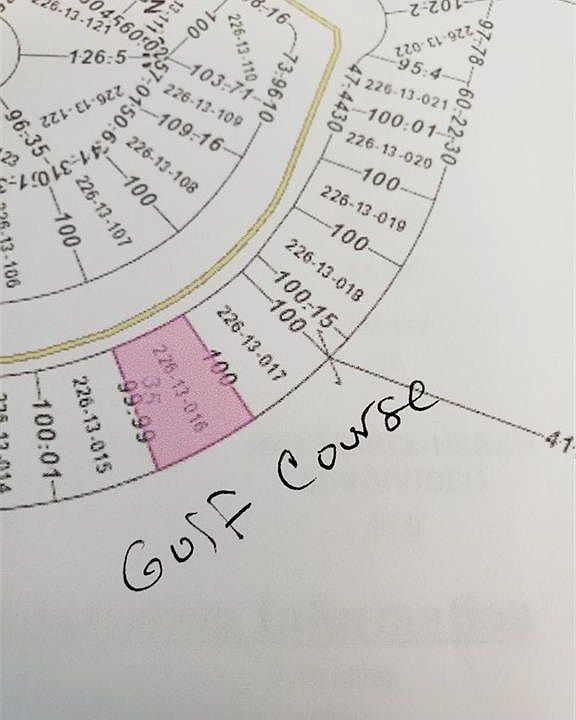 226-13-121
126.5
100
226-13-110
73.96
10
103-71
226-13-109
109-16
226-13-122
226-13-108
100
96.35
226-13-107
100
226-13-106
102-2
226-13-022
97-78
95-4
226-13-021
60-22
30
47-44
30
100-01
226-13-020
100
226-13-019
100
226-13-018
100-15
100
226-13-017
100
226-13-016
35
99-99
226-13-015
100-01
41
Golf Course